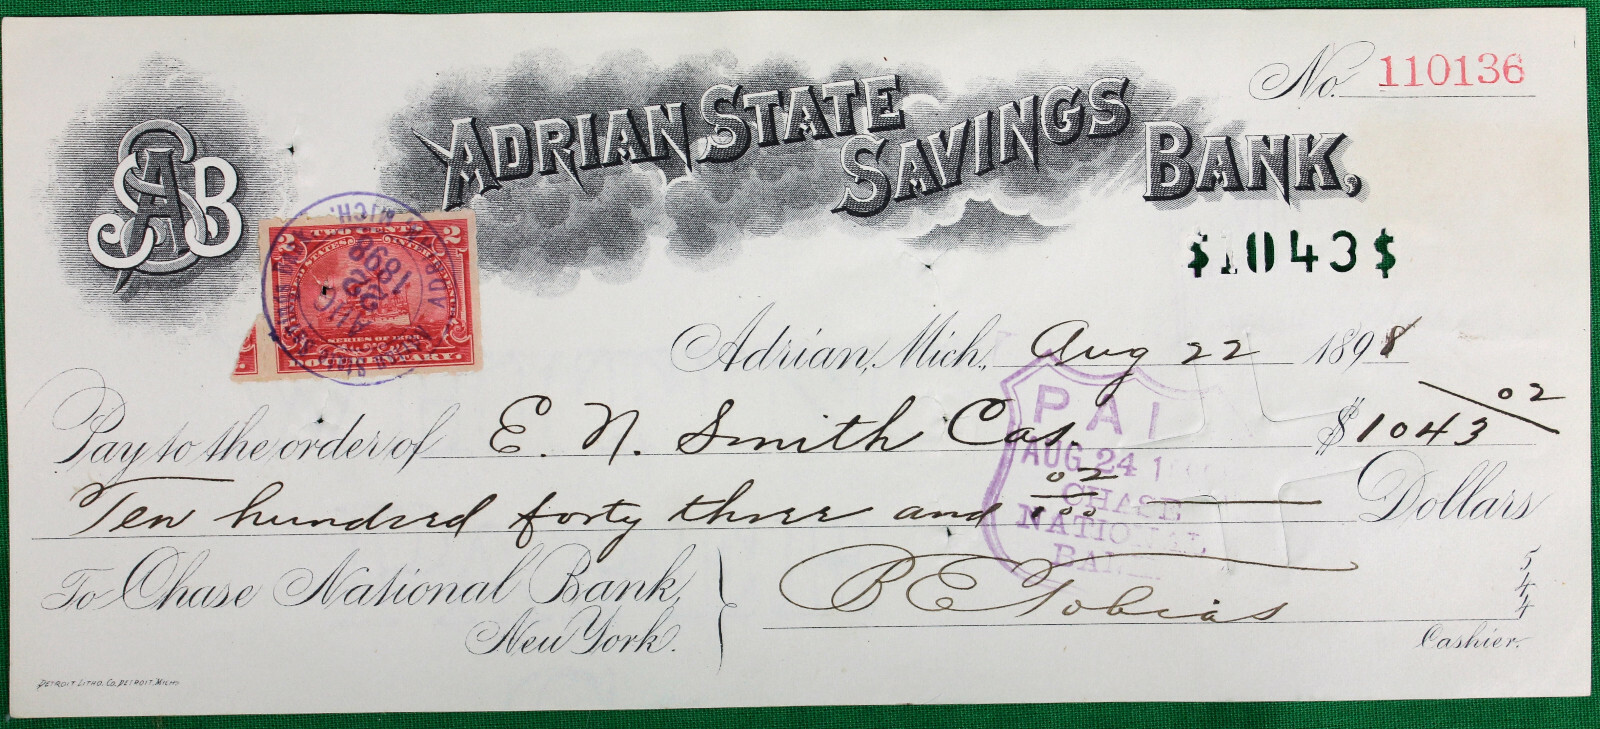 No. 110136
ASSB
ADRIAN STATE SAVINGS BANK,
$1043$
2 TWO CENTS 2
UNITED STATES INTER. REVENUE
SERIES OF 1898
DOCUMENTARY.
ADRIAN, MICH.
AUG
22
1898
Adrian, Mich., Aug 22 1898
Pay to the order of E. N. Smith Cas. $1043 02
Ten hundred forty three and 02/100 Dollars
PAI
AUG 24 1
CHASE
NATIONAL
BAN
To Chase National Bank,
New York.
B E Tobias
Cashier.
5
4
4
DETROIT LITHO. CO., DETROIT, MICH.